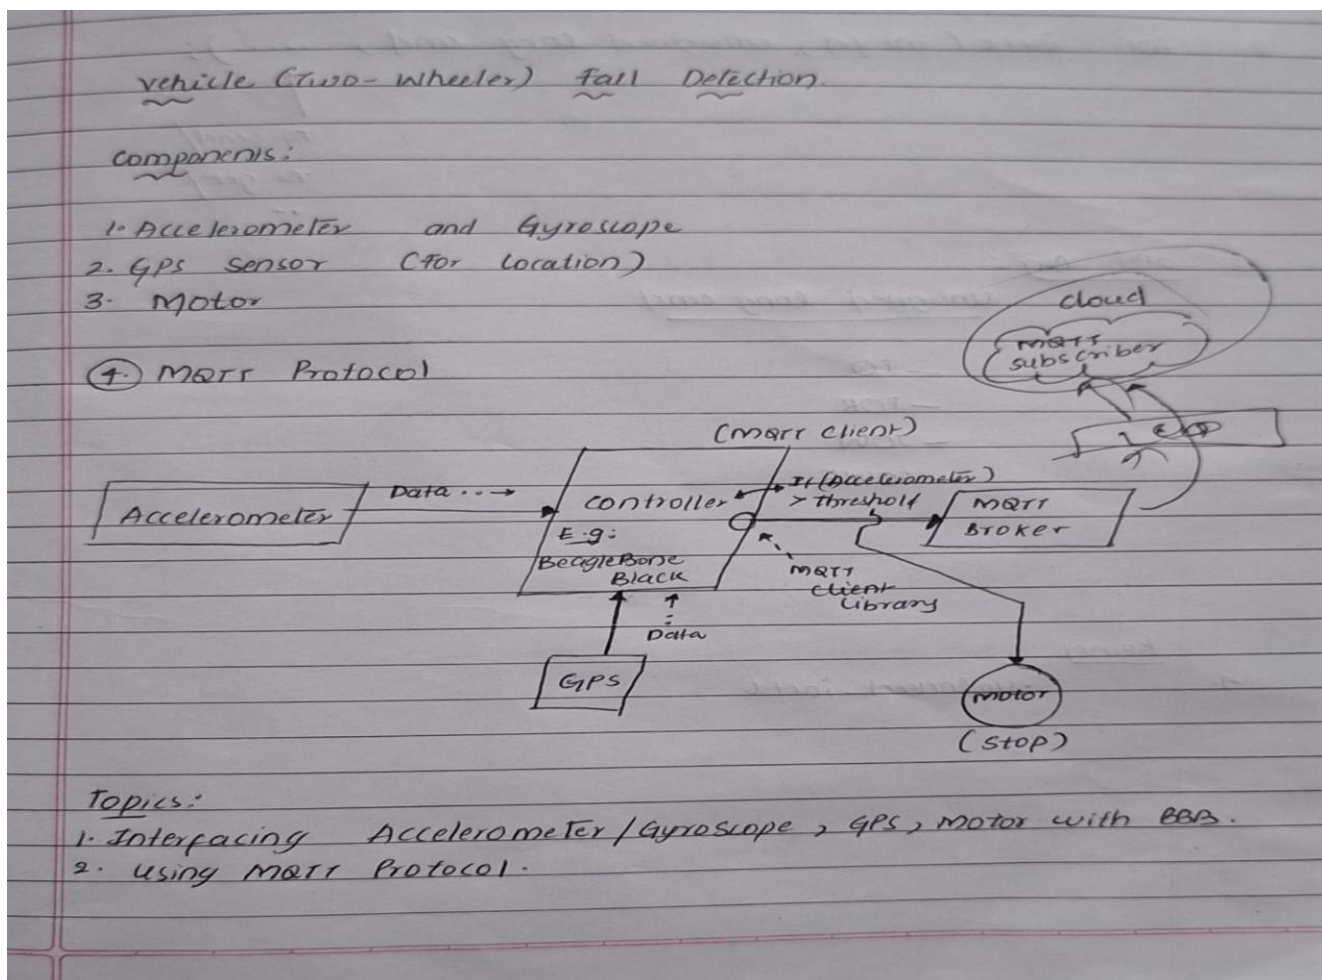 Vehicle (Two-Wheeler) Fall Detection.
Components:
1. Accelerometer and Gyroscope
2. GPS Sensor (For Location)
3. Motor
4. MQTT Protocol
cloud
MQTT
subscriber
(MQTT Client)
Accelerometer
Data
Controller
E.g:
BeagleBone
Black
If (Accelerometer)
> Threshold
MQTT
Broker
MQTT
Client
Library
Data
GPS
Motor
(Stop)
Topics:
1. Interfacing Accelerometer/Gyroscope, GPS, Motor with BBB.
2. Using MQTT Protocol.